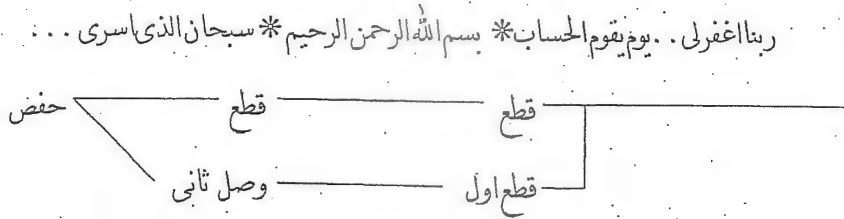 ربنا اغفرلی . . . یوم یقوم الحساب * بسم الله الرحمن الرحیم * سبحان الذی اسری . . .
قطع قطع حفض
قطع اول وصل ثانی